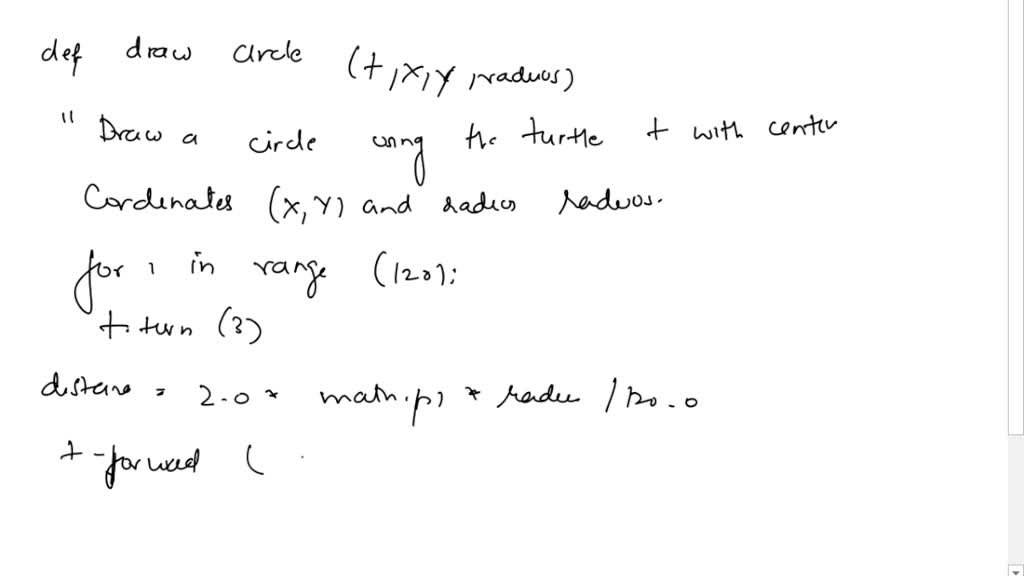 def draw Circle (t, x, y, radius)
" Draw a circle using the turtle t with center
Cordenates (x, y) and radius radius.
for i in range (120):
t. turn (3)
distance = 2.0 * math.pi * radius / 120.0
t - forward (